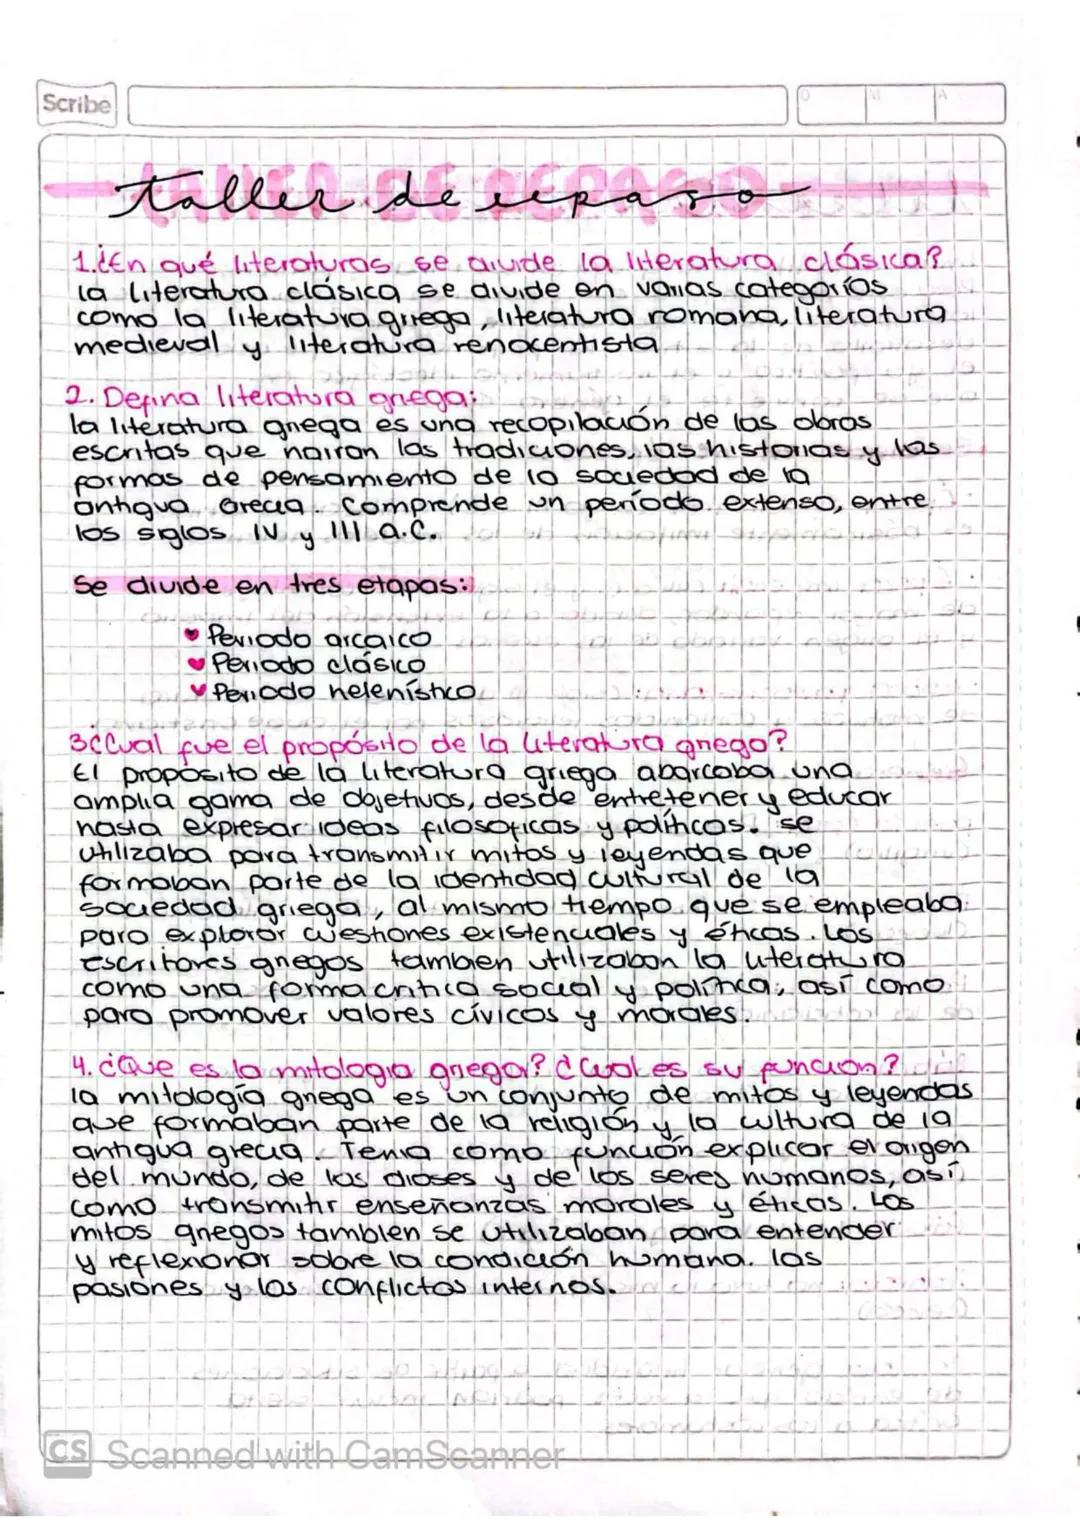 Scribe
D M A
TALLER DE REPASO
taller de repaso
1.¿En qué literaturas se divide la literatura clásica?
la literatura clásica se divide en varias categorías
como la literatura griega, literatura romana, literatura
medieval y literatura renacentista
2. Defina literatura griega:
la literatura griega es una recopilación de las obras
escritas que narran las tradiciones, las historias y las
formas de pensamiento de la sociedad de la
antigua Grecia. Comprende un período extenso, entre
los siglos IV y III a.C.
Se divide en tres etapas:
♥ Periodo arcaico
♥ Periodo clásico
♥ Periodo helenístico
3¿Cual fue el propósito de la literatura griega?
El propósito de la literatura griega abarcaba una
amplia gama de objetivos, desde entretener y educar
hasta expresar ideas filosoficas y políticas. se
utilizaba para transmitir mitos y leyendas que
formaban parte de la identidad cultural de la
sociedad griega, al mismo tiempo que se empleaba
para explorar cuestiones existenciales y éticas. Los
escritores griegos tambien utilizaban la literatura
como una forma critica social y política, así como
para promover valores cívicos y morales.
4. ¿Que es la mitologia griega? ¿Cual es su funcion?
la mitología griega es un conjunto de mitos y leyendas
que formaban parte de la religión y la cultura de la
antigua grecia. Tenia como función explicar el origen
del mundo, de los dioses y de los seres humanos, así
como transmitir enseñanzas morales y éticas. Los
mitos griegos tambien se utilizaban para entender
y reflexionar sobre la condición humana. las
pasiones y los conflictos internos.
CS Scanned with CamScanner